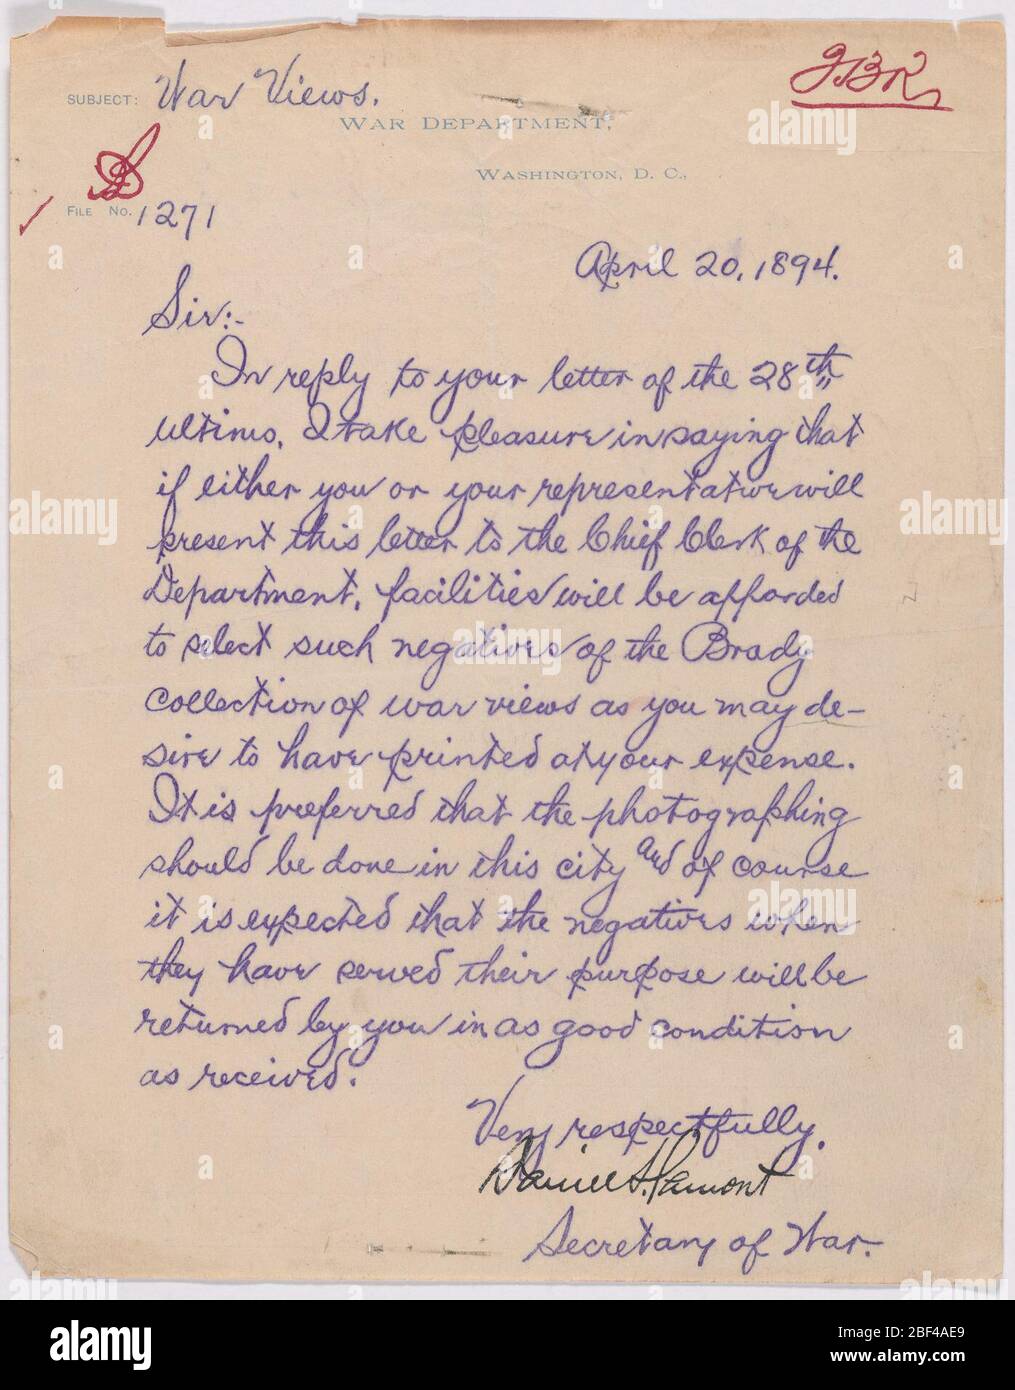 SUBJECT: War Views.
JBK
WAR DEPARTMENT,
WASHINGTON, D. C.,
FILE NO. 1271
April 20, 1894.
Sir:-
In reply to your letter of the 28th
ultimo, I take pleasure in saying that
if either you or your representative will
present this letter to the Chief Clerk of the
Department, facilities will be afforded
to select such negatives of the Brady
collection of war views as you may de-
sire to have printed at your expense.
It is preferred that the photographing
should be done in this city and of course
it is expected that the negatives when
they have served their purpose will be
returned by you in as good condition
as received.
Very respectfully,
Daniel S. Lamont
Secretary of War.
alamy
Image ID: 2BF4AE9
www.alamy.com